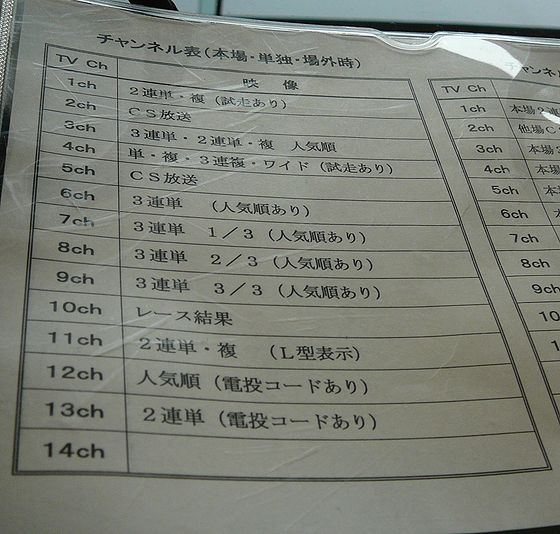 チャンネル表(本場・単独・場外時)
TV Ch 映 像
1ch 2連単・複(試走あり)
2ch CS放送
3ch 3連単・2連単・複 人気順
4ch 単・複・3連複・ワイド(試走あり)
5ch CS放送
6ch 3連単 (人気順あり)
7ch 3連単 1/3(人気順あり)
8ch 3連単 2/3(人気順あり)
9ch 3連単 3/3(人気順あり)
10ch レース結果
11ch 2連単・複 (L型表示)
12ch 人気順(電投コードあり)
13ch 2連単(電投コードあり)
14ch
チャンネル
TV Ch
1ch 本場2連
2ch 他場
3ch 本場
4ch 本
5ch
6ch
7ch
8ch
9ch
10